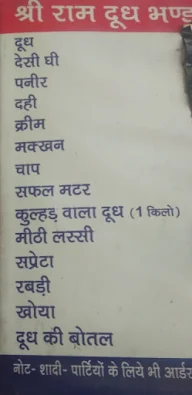 श्री राम दूध भण्ड
दूध
देसी घी
पनीर
दही
क्रीम
मक्खन
चाप
सफल मटर
कुल्हड़ वाला दूध (1 किलो)
मीठी लस्सी
सप्रेटा
रबड़ी
खोया
दूध की बोतल
नोट- शादी- पार्टियों के लिये भी आर्डर